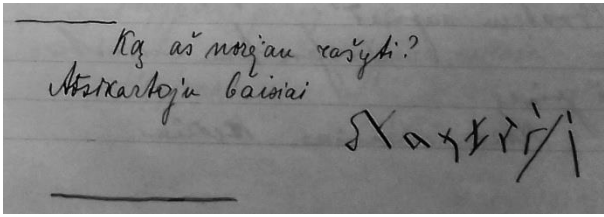 Ką aš norėjau rašyti?
Atsikartoju baisiai